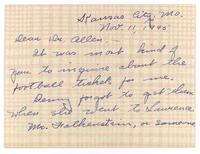 Kansas City, Mo.
Nov. 11, 1940
Dear Dr. Allen,
It was most kind of
you to inquire about the
football tickets for me.
Denny forgot to get him
when she went to Lawrence.
Mr. Falkenstein, or someone